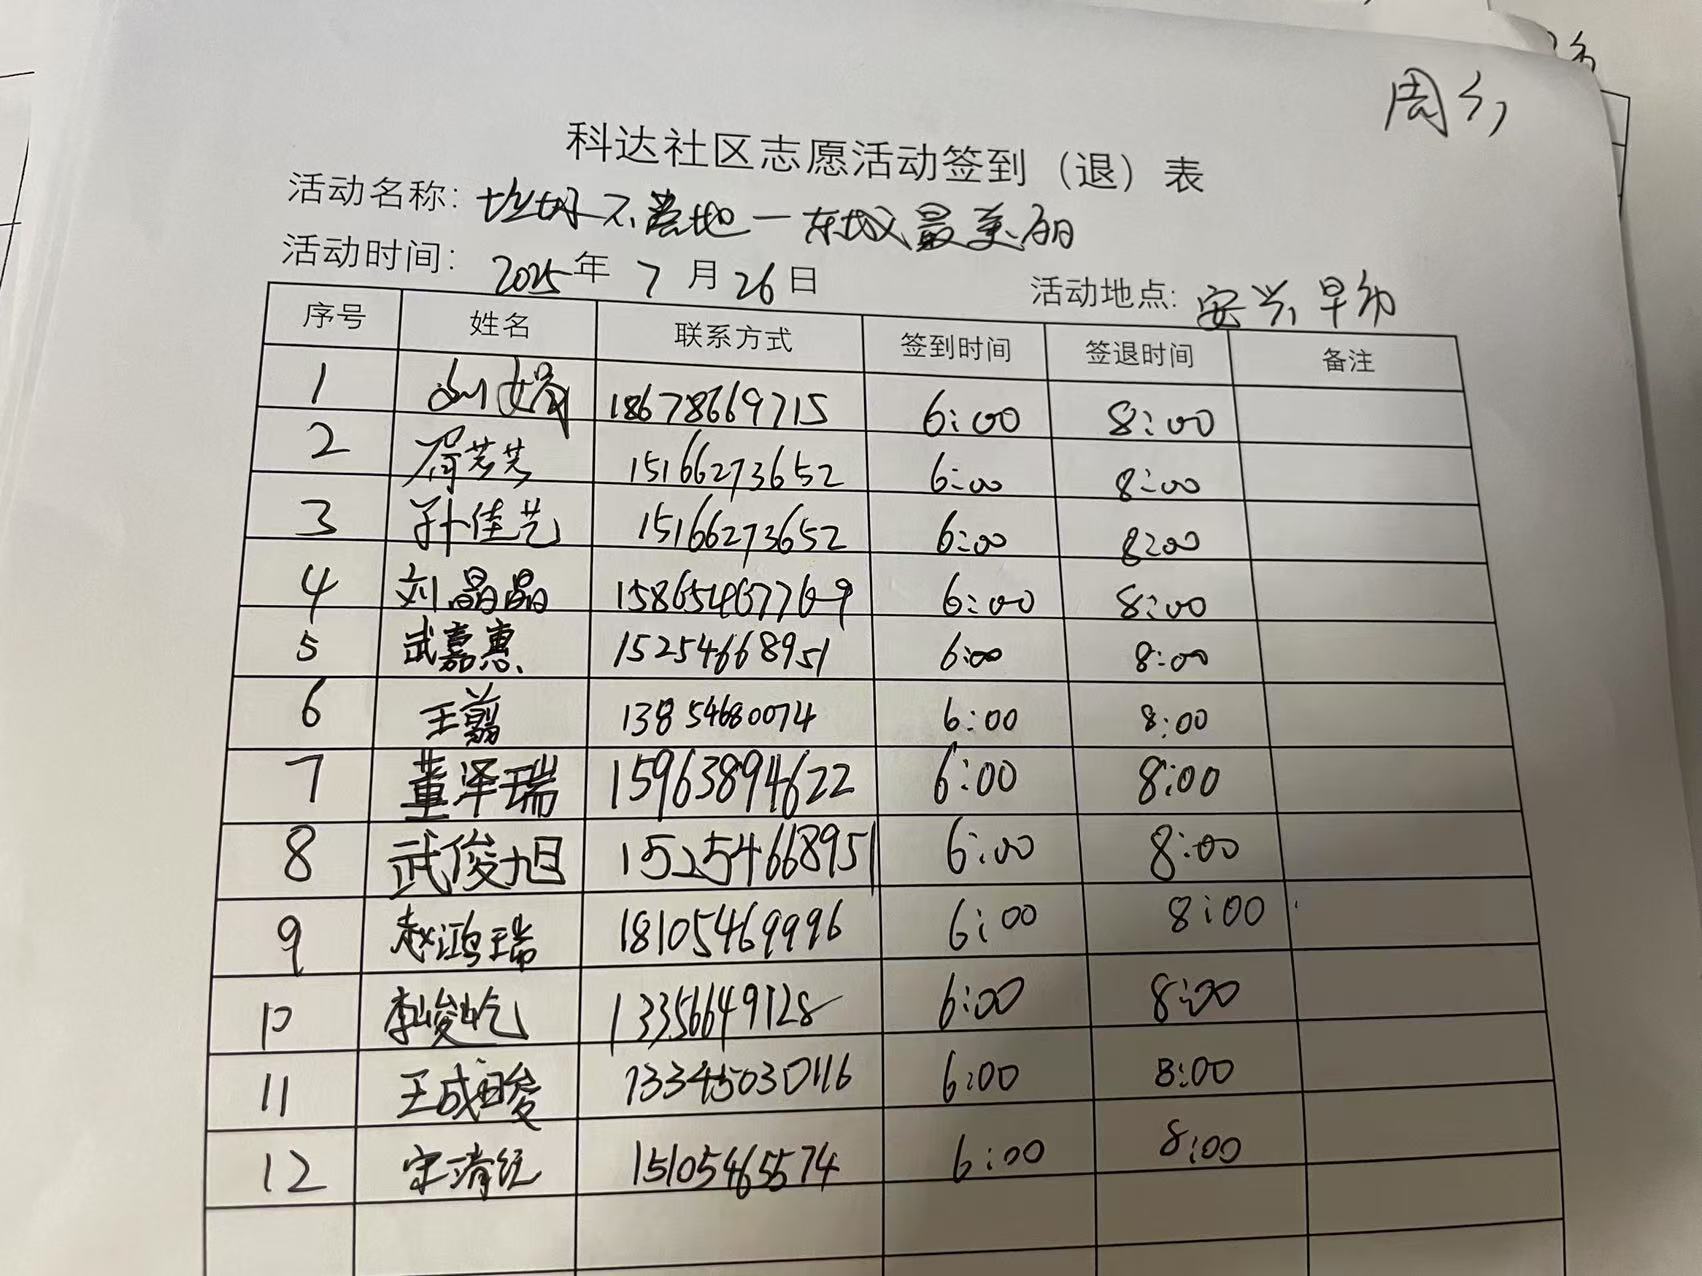 科达社区志愿活动签到（退）表
活动名称: 垃圾不落地一东城最美丽
活动时间: 2025年 7 月 26 日 活动地点: 安兴早市
序号 姓名 联系方式 签到时间 签退时间 备注
1 18678669715 6:00 8:00
2 15166273652 6:00 8:00
3 孙佳艺 15166273652 6:00 8:00
4 刘晶晶 6:00 8:00
5 武嘉惠 15254668951 6:00 8:00
6 王翦 13854680074 6:00 8:00
7 董泽瑞 15963894622 6:00 8:00
8 武俊旭 15254668951 6:00 8:00
9 赵鸿瑞 18105469996 6:00 8:00
10 李峻屹 13356649128 6:00 8:00
11 王成晙 6:00 8:00
12 15105465574 6:00 8:00